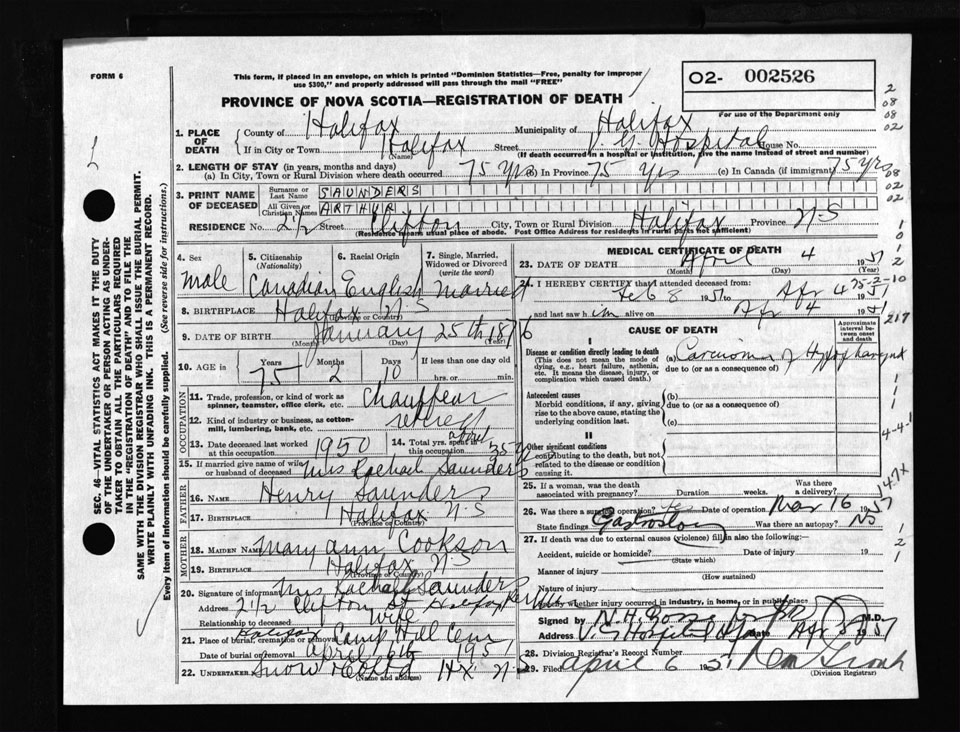 FORM 6
This form, if placed in an envelope, on which is printed "Dominion Statistics—Free, penalty for improper
use $300," and properly addressed will pass through the mail "FREE"
O2- 002526
For use of the Department only
PROVINCE OF NOVA SCOTIA—REGISTRATION OF DEATH
1. PLACE OF DEATH { County of Halifax Municipality of Halifax
If in City or Town Halifax (Name) Street V. G. Hospital House No.
(If death occurred in a hospital or institution, give the name instead of street and number)
2. LENGTH OF STAY (in years, months and days)
(a) In City, Town or Rural Division where death occurred 75 yrs (b) In Province 75 yrs (c) In Canada (if immigrant) 75 yrs
3. PRINT NAME OF DECEASED { Surname or Last Name SAUNDERS
All Given or Christian Names ARTHUR
RESIDENCE No. 2½ Street Clifton City, Town or Rural Division Halifax Province N-S
(Residence means usual place of abode. Post Office Address for residents in rural parts not sufficient)
4. Sex male
5. Citizenship (Nationality) Canadian
6. Racial Origin English
7. Single, Married, Widowed or Divorced (write the word) Married
8. BIRTHPLACE Halifax N-S (Province or Country)
9. DATE OF BIRTH January 25th 1876 (Month) (Day) (Year)
10. AGE Years 75 Months 2 Days 10 If less than one day old hrs. or min.
OCCUPATION
11. Trade, profession, or kind of work as spinner, teamster, office clerk, etc. Chauffeur
12. Kind of industry or business, as cotton-mill, lumbering, bank, etc. retired
13. Date deceased last worked at this occupation 1950
14. Total yrs. spent in this occupation 35 yrs
15. If married give name of wife or husband of deceased Mrs Rachael Saunders
FATHER
16. NAME Henry Saunders
17. BIRTHPLACE Halifax N-S (Province or Country)
MOTHER
18. MAIDEN NAME Mary ann Cookson
19. BIRTHPLACE Halifax N-S (Province or Country)
20. Signature of informant Mrs Rachael Saunders
Address 2½ Clifton St Halifax
Relationship to deceased wife
21. Place of burial, cremation or removal Halifax Camp Hill Cem
Date of burial or removal April 6th 1951
22. UNDERTAKER Snow Co Ltd Hx. N-S
(Name and address)
MEDICAL CERTIFICATE OF DEATH
23. DATE OF DEATH April 4 1951
(Month) (Day) (Year)
24. I HEREBY CERTIFY that I attended deceased from:
Feb 8 1951 to Apr 4 1951
and last saw him alive on Apr 4 1951
CAUSE OF DEATH
Approximate interval between onset and death
I
Disease or condition directly leading to death (a) Carcinoma of Hypopharynx
(This does not mean the mode of dying, e.g., heart failure, asthenia, etc. It means the disease, injury, or complication which caused death.)
due to (or as a consequence of)
Antecedent causes (b)
Morbid conditions, if any, giving rise to the above cause, stating the underlying condition last.
due to (or as a consequence of)
(c)
II
Other significant conditions contributing to the death, but not related to the disease or condition causing it.
25. If a woman, was the death associated with pregnancy? Duration weeks. Was there a delivery?
26. Was there a surgical operation? Yes Date of operation Mar 16 1951
State findings Was there an autopsy? No
27. If death was due to external causes (violence) fill in also the following:
Accident, suicide or homicide? (State which) Date of injury 19
Manner of injury (How sustained)
Nature of injury
Specify whether injury occurred in industry, in home, or in public place
Signed by M.D.
Address V. G Hospital Date Apr 5 1951
28. Division Registrar's Record Number
29. Filed April 6 1951
(Division Registrar)
SEC. 46—VITAL STATISTICS ACT MAKES IT THE DUTY
OF THE UNDERTAKER OR PERSON ACTING AS UNDER-
TAKER TO OBTAIN ALL THE PARTICULARS REQUIRED
IN THE "REGISTRATION OF DEATH" AND TO FILE THE
SAME WITH THE DIVISION REGISTRAR WHO SHALL ISSUE THE BURIAL PERMIT.
WRITE PLAINLY WITH UNFADING INK. THIS IS A PERMANENT RECORD.
Every item of information should be carefully supplied. (See reverse side for instructions.)